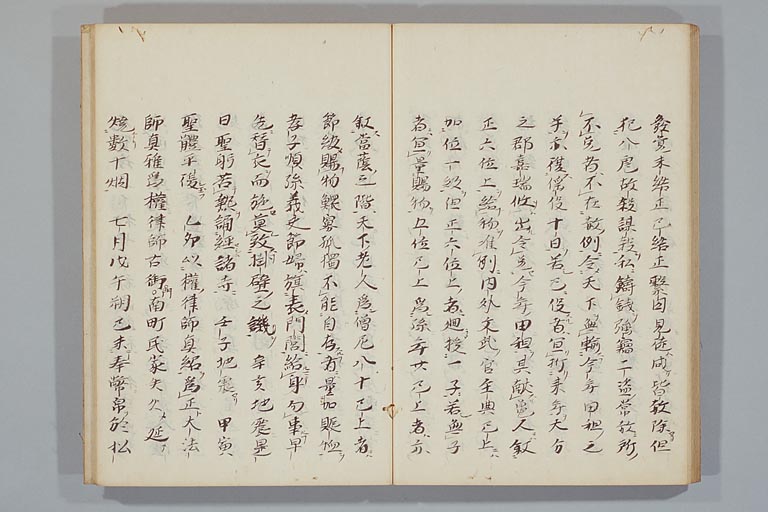 發覺未結正已結正繫囚見徒咸皆赦除但
犯八虐故殺謀殺私鑄錢強竊二盗常赦所
不免者不在赦例令天下無輸今年田租之
半亦復徭役十日若已役者亘折来年天分
之郡嘉瑞攸出令免今年田租其献亀人叙
正六位上給物准例内外文武官主典已上
加位一級但正六位上者廻授一子若無子
者亘量賜物五位已上為孫年廿已上者亦
叙當蔭之階天下老人為僧尼八十已上者
節級賜物鰥寡孤獨不能自存者量加賑恤
孝子順孫義夫節婦旌表門閭給身勿事早
色替衣而施莫致掛壁之譏 辛亥地震是
日聖躬苦熱誦經諸寺 壬子地震 甲寅
聖體平復 乙卯以權律師真紹為正大法
師真雅為權律師右衛門南町氏家失火延
焼数十烟 七月戊午朔己未奉幣帛於松